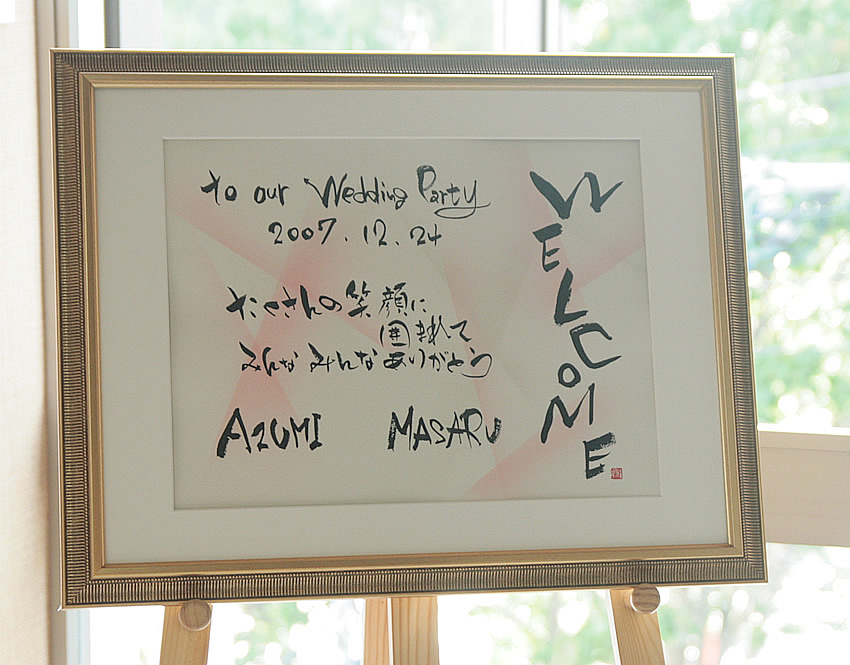 WELCOME
to our Wedding Party
2007.12.24
たくさんの笑顔に
囲まれて
みんな みんな ありがとう
AZUMI MASARU